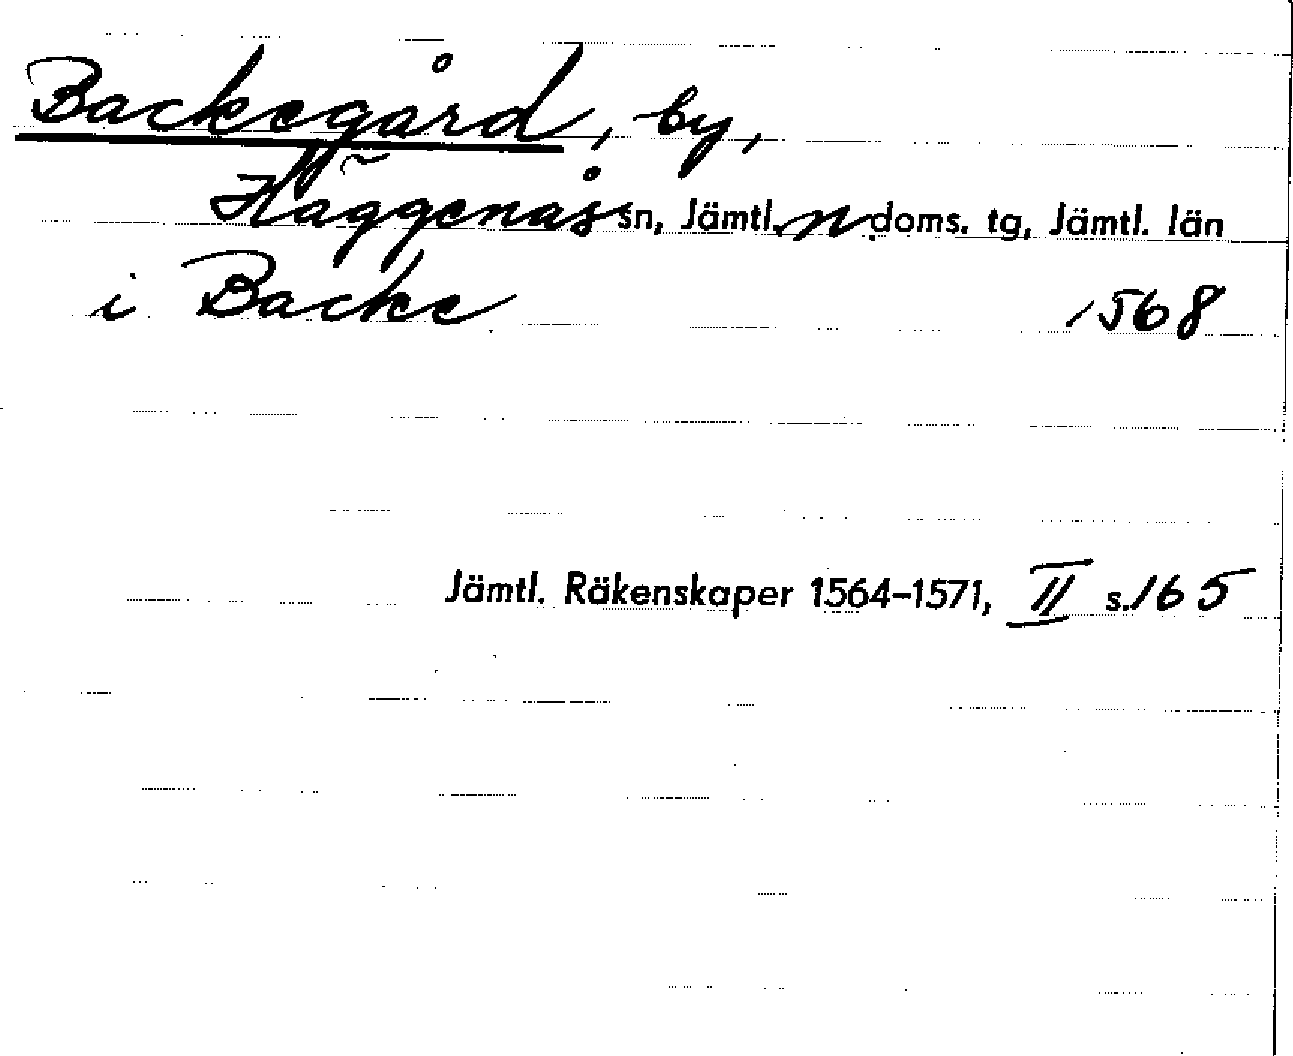 Backegård, by,
Häggenås sn, Jämtl. n doms. tg, Jämtl. län
i Backe 1568
Jämtl. Räkenskaper 1564-1571, II s. 165